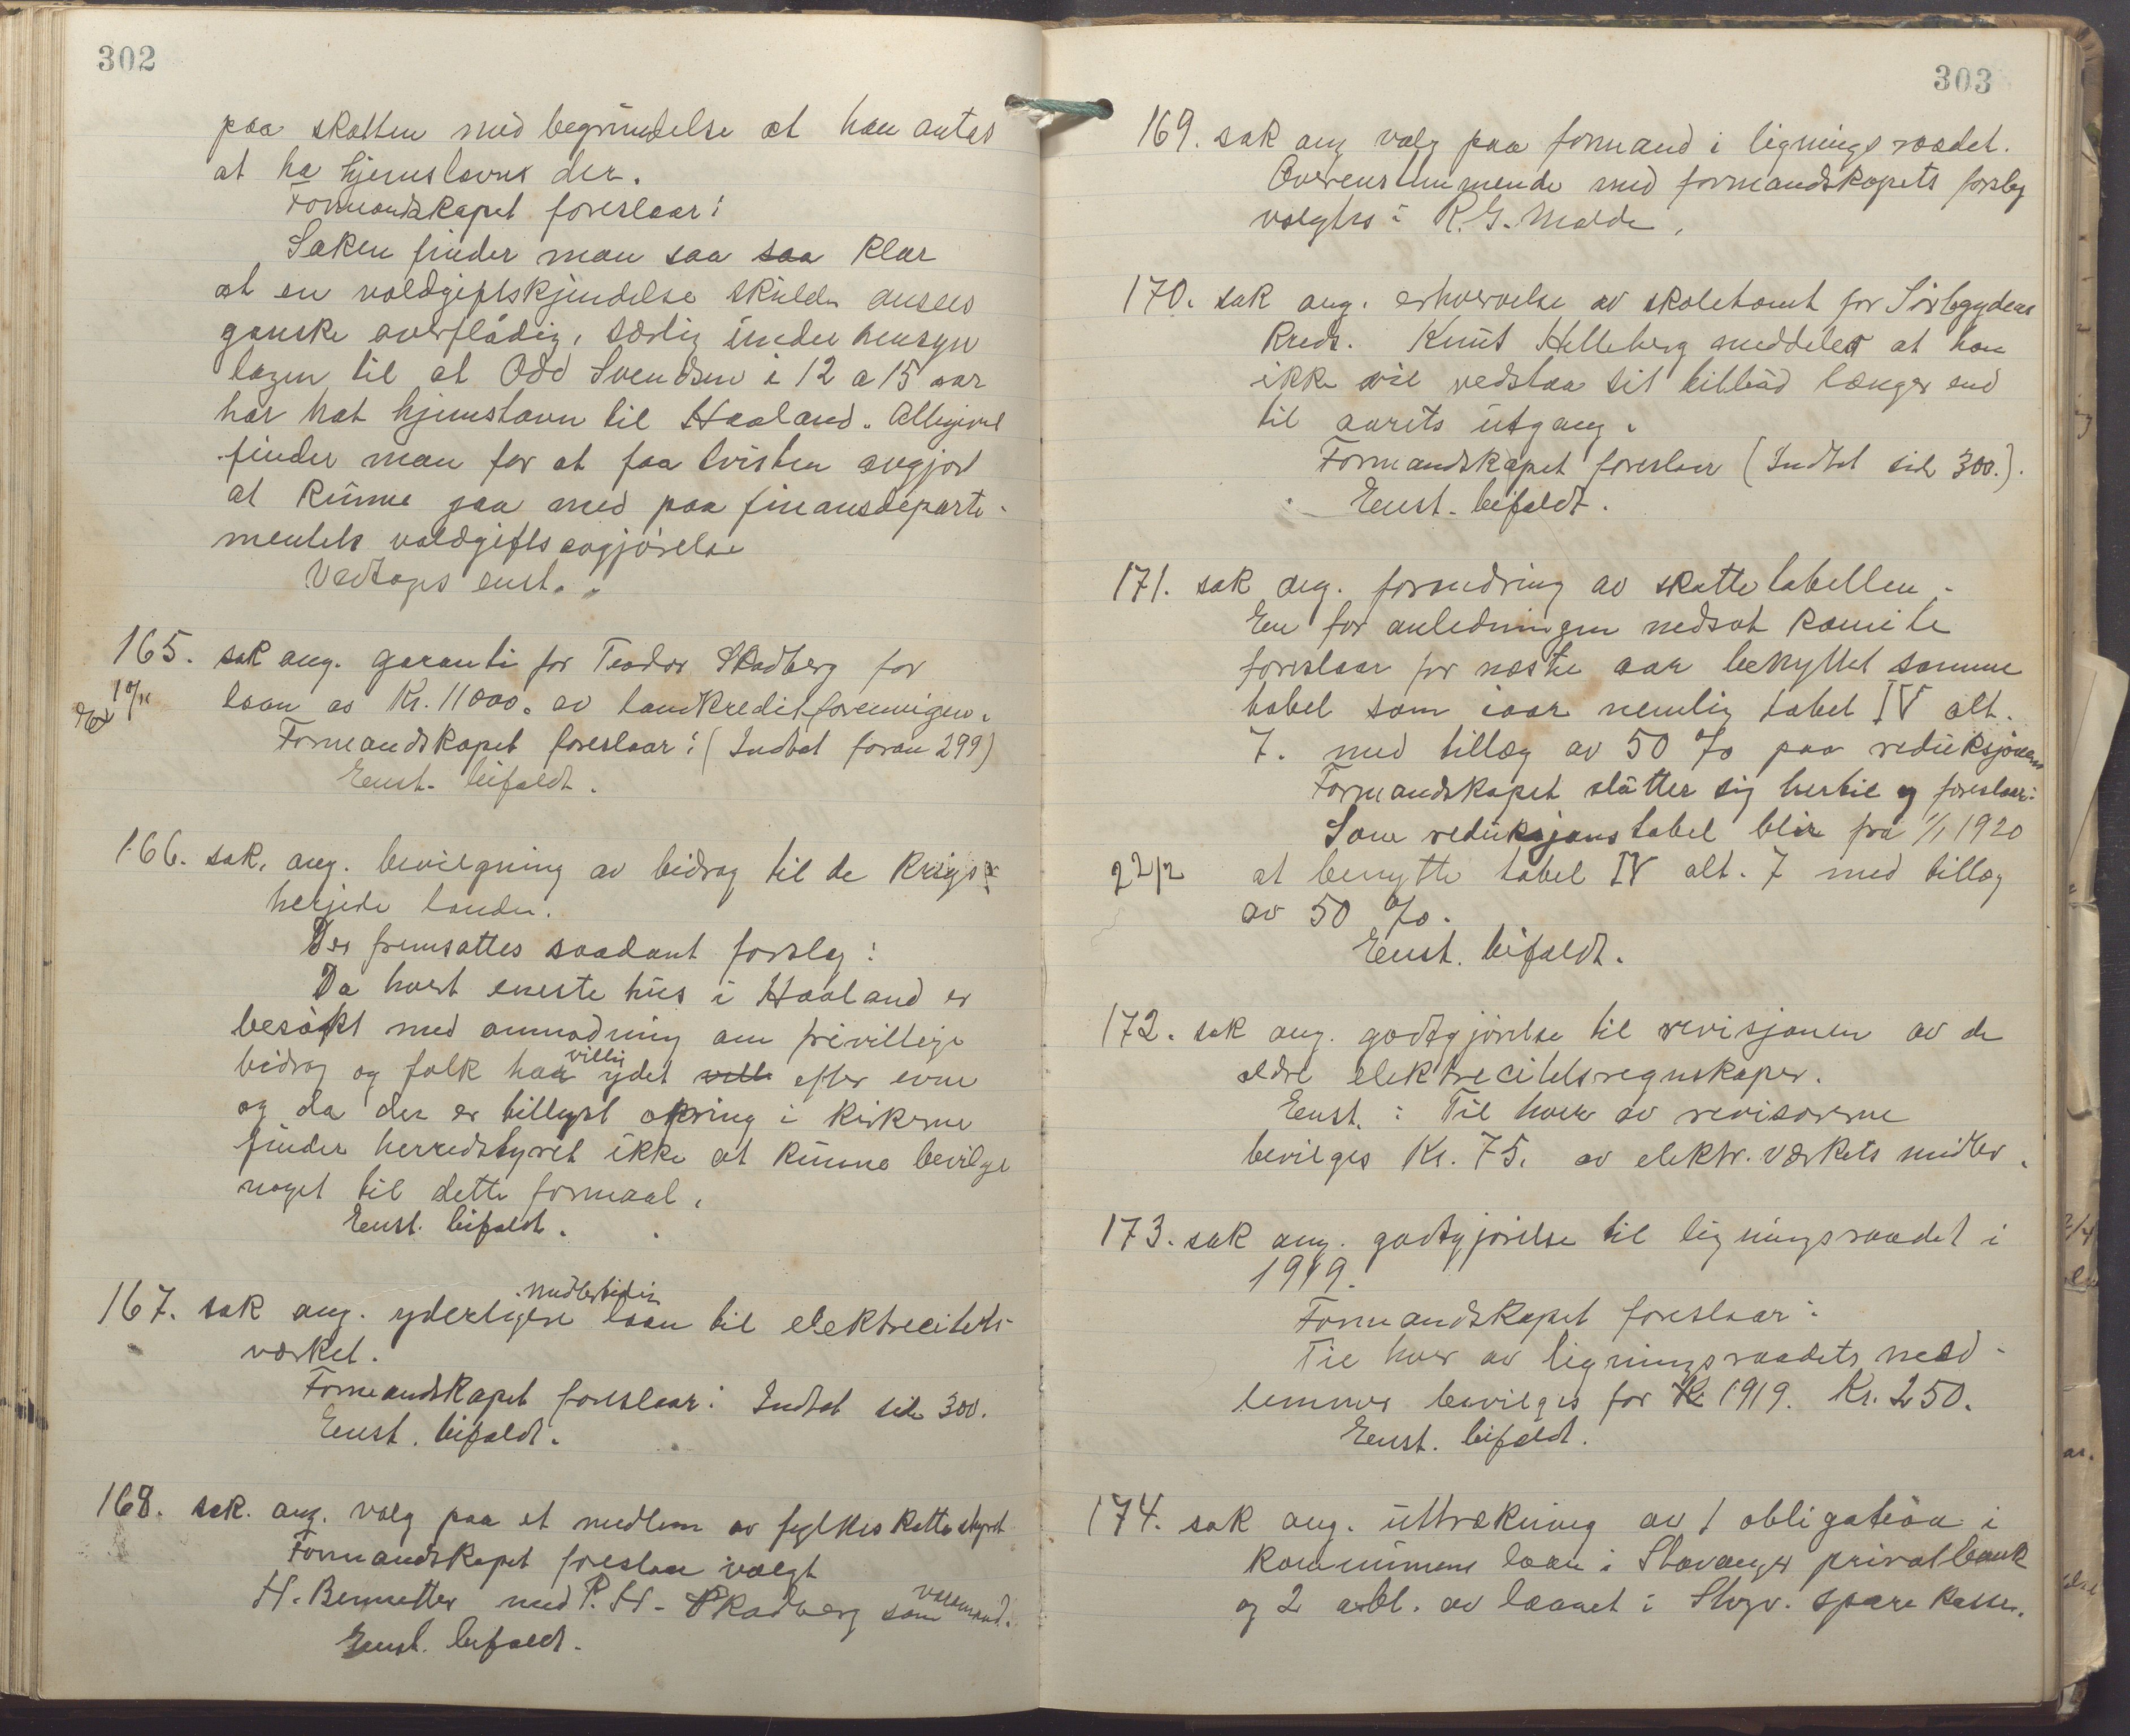 302
paa skatten med begrundelse at han antas
at ha hjemstavns der.
Formandskapet foreslaar:
Saken finder man saa saa klar
at en voldgiftskjendelse skulde ansees
ganske overflødig, særlig under hensyn
tagen til at Odd Svendsen i 12 a 15 aar
har hat hjemstavn til Haaland. Allikevel
finder man for at faa tvisten avgjort
at kunne gaa med paa finansdeparte-
mentets voldgiftsavgjørelse
Vedtages enst.
165. sak ang. garanti for Teodor Skadberg for
10/11
laan av Kr. 11000. av landkreditforeningen.
Formandskapet foreslaar: (Indtat foran 299)
Enst. bifaldt.
166. sak. ang. bevilgning av bidrag til de krigs-
herjede lande.
Der fremsattes saadant forslag:
Da hvert eneste hus i Haaland er
besøkt med anmodning om frivillige
bidrag og folk har villig ydet efter evne
og da der er tillyst ofring i kirkerne
finder herredstyret ikke at kunne bevilge
noget til dette formaal.
Enst. bifaldt.
167. sak ang. yderligere midlertidig laan til elektrecitets-
værket.
Formandskapet foreslaar: Indtat side 300.
Enst. bifaldt.
168. sak. ang. valg paa et medlem av fylkesskattestyret
Formandskapet foreslaar valgt
H. Bennetter med P. H. Skadberg som varamand.
Enst. bifaldt.
303
169. sak ang valg paa formand i ligningsraadet.
Overenstemmende med formandskapets forslag
valgtes: R. G. Malde.
170. sak ang. erhvervelse av skoletomt for Sørbygdens
kreds. Knut Helleberg meddeler at han
ikke vil vedstaa sit tilbud længer end
til aarets utgang.
Formandskapet foreslaar (Indtat side 300.).
Enst. bifaldt.
171. sak ang. forandring av skattetabellen.
En for anledningen nedsat komite
foreslaar for næste aar benyttet samme
tabel som iaar nemlig tabel IV alt.
7. med tillæg av 50 % paa reduksjonen
Formandskapet slutter sig hertil og foreslaar:
Som reduksjonstabel blir fra 1/1 1920
22/12
at benytte tabel IV alt. 7 med tillæg
av 50 %.
Enst. bifaldt.
172. sak ang. godtgjørelse til revisjonen av de
ældre elektrecitetsregnskaper.
Enst.: Til hver av revisorerne
bevilges Kr. 75. av elektr. værkets midler.
173. sak ang. godtgjørelse til ligningsraadet i
1919.
Formandskapet foreslaar:
Til hver av ligningsraadets med-
lemmer bevilges for 1919. Kr. 250.
Enst. bifaldt.
174. sak ang. uttrækning av 1 obligation i
kommunens laan i Stavanger privatbank
og 2 obl. av laanet i Stvgr. sparekasse.